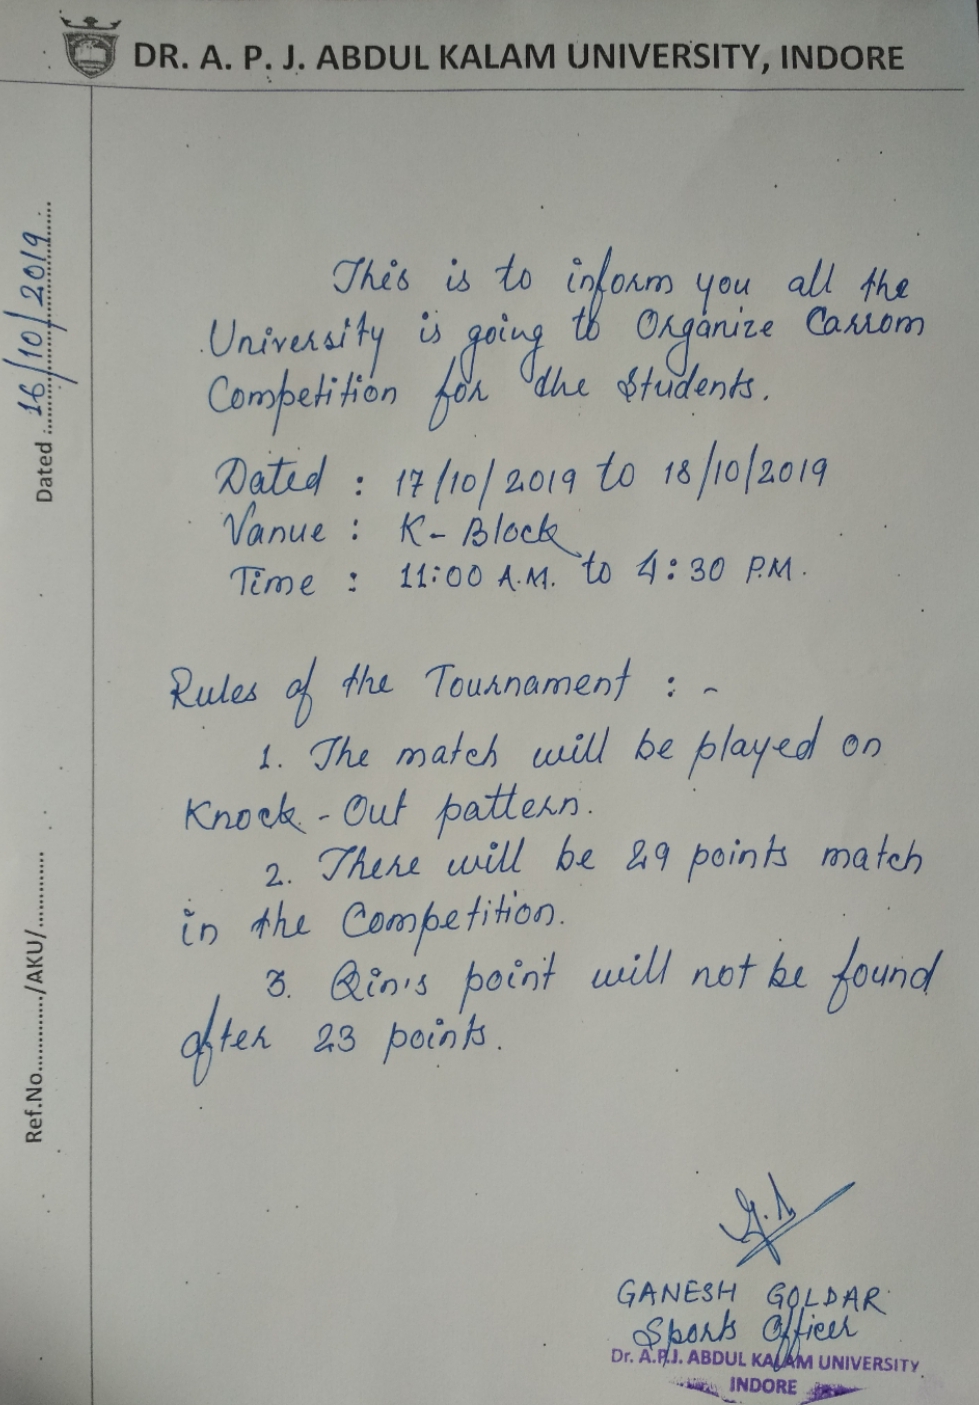 DR. A. P. J. ABDUL KALAM UNIVERSITY, INDORE
Dated :16/10/2019
This is to inform you all the
University is going to Organize Carrom
Competition for the Students.
Dated : 17/10/2019 to 18/10/2019
Vanue : K- Block
Time : 11:00 A.M. to 4:30 P.M.
Rules of the Tournament : -
1. The match will be played on
Knock-Out pattern.
2. There will be 29 points match
in the Competition.
3. Qin's point will not be found
after 23 points.
Ref.No.........../AKU/...........
GANESH GOLDAR
Sports Officer
Dr. A.P.J. ABDUL KALAM UNIVERSITY
INDORE